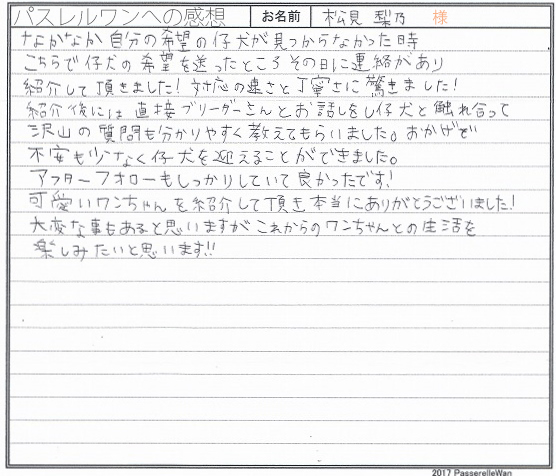 パスレルワンへの感想 お名前 松見 梨乃 様
なかなか自分の希望の仔犬が見つからなかった時
こちらで仔犬の希望を送ったところその日に連絡があり
紹介して頂きました!対応の速さと丁寧さに驚きました!
紹介後には直接ブリーダーさんとお話しをし仔犬と触れ合って
沢山の質問も分かりやすく教えてもらいました。おかげで
不安も少なく仔犬を迎えることができました。
アフターフォローもしっかりしていて良かったです!
可愛いワンちゃんを紹介して頂き本当にありがとうございました!
大変な事もあると思いますがこれからのワンちゃんとの生活を
楽しみたいと思います!!
2017 PasserelleWan